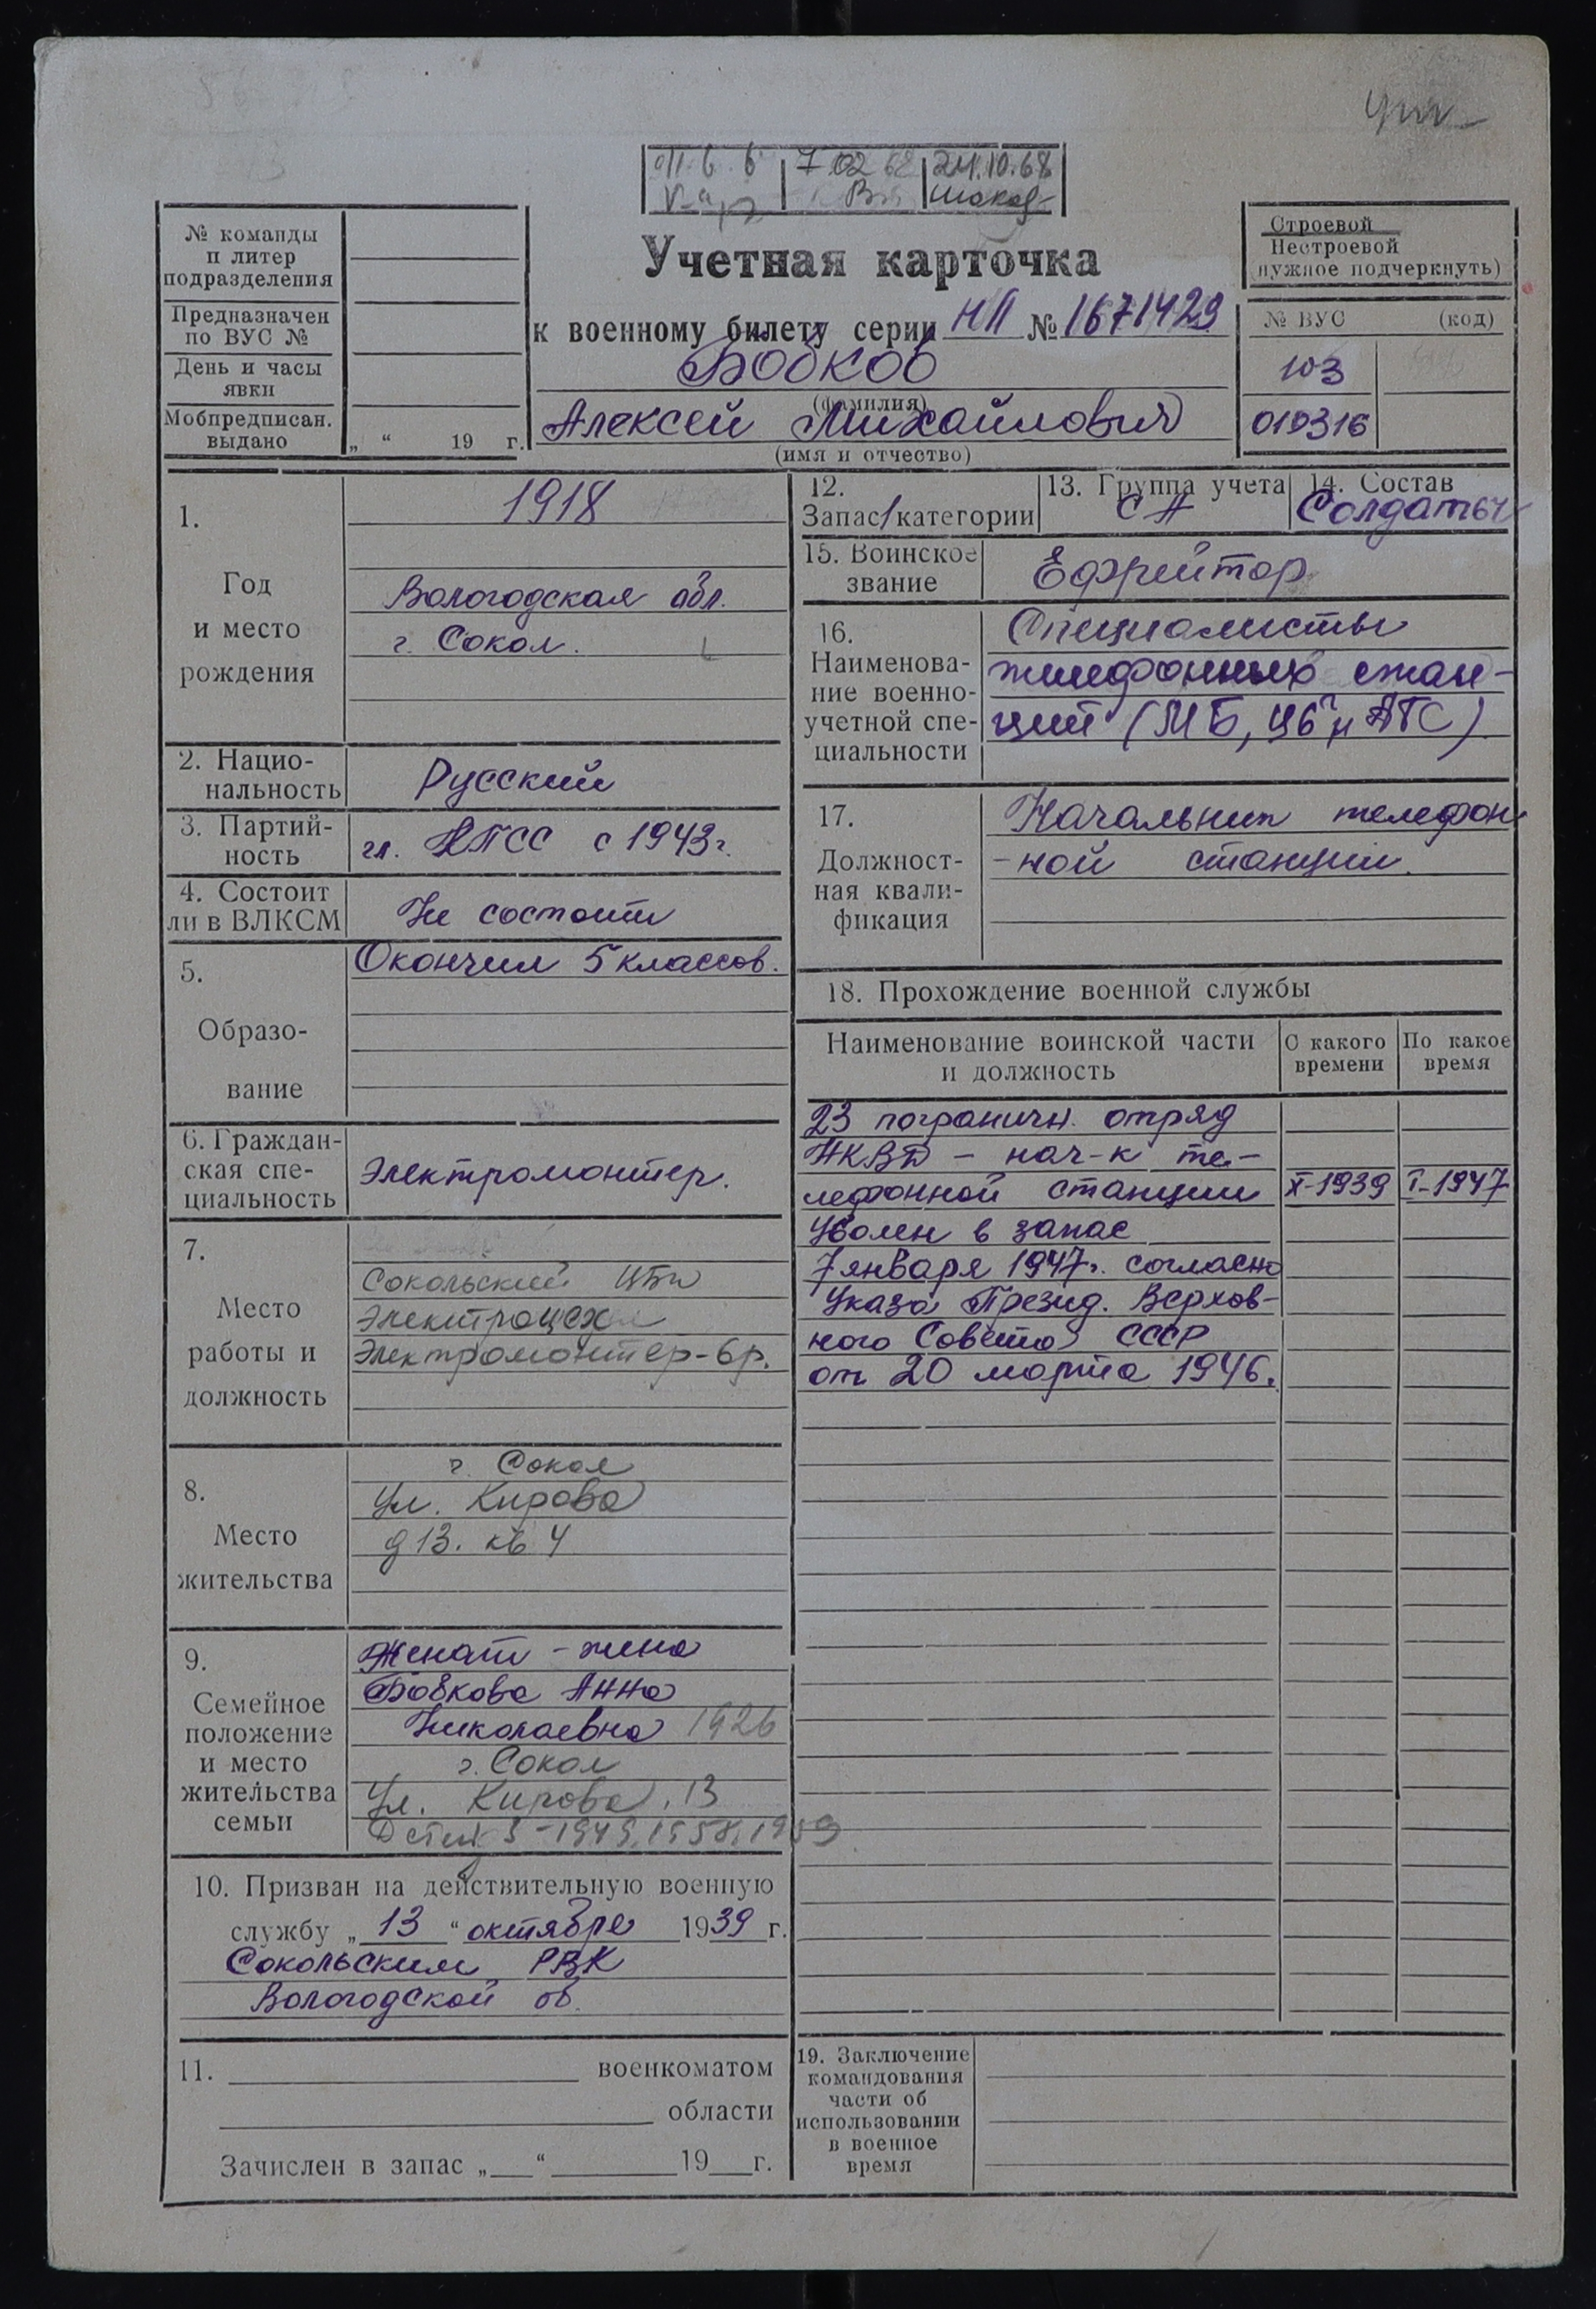 7 02 68
24.10.68
№ команды
п литер
подразделения
Предназначен
по ВУС №
День и часы
явки
Мобпредписан.
выдано
„ “ 19 г.
Учетная карточка
к военному билету серии НП № 1671429
Бобков
(фамилия)
Алексей Михайлович
(имя и отчество)
Строевой
Нестроевой
(нужное подчеркнуть)
№ ВУС (код)
103
010316
1.
Год
и место
рождения
1918
Вологодская обл.
г. Сокол.
2. Нацио-
нальность
Русский
3. Партий-
ность
чл. КПСС с 1943г.
4. Состоит
ли в ВЛКСМ
Не состоит
5.
Образо-
вание
Окончил 5 классов.
6. Граждан-
ская спе-
циальность
Электромонтер.
7.
Место
работы и
должность
Сокольский ЦБК
Электроцех
Электромонтер-6р.
8.
Место
жительства
г. Сокол
Ул. Кирова
д 13. кв 4
9.
Семейное
положение
и место
жительства
семьи
Женат - жена
Бобкова Анна
Николаевна 1926
г. Сокол
Ул. Кирова, 13
Детей 3 - 1949, 1958, 1959
10. Призван на действительную военную
службу „ 13 “ октября 1939 г.
Сокольским РВК
Вологодской об.
11. военкоматом
области
Зачислен в запас „ “ 19 г.
12.
Запас 1 категории
13. Группа учета
СА
14. Состав
Солдаты
15. Воинское
звание
Ефрейтор
16.
Наименова-
ние военно-
учетной спе-
циальности
Специалисты
телефонных стан-
ций (МБ, ЦБ и АТС)
17.
Должност-
ная квали-
фикация
Начальник телефон
-ной станции.
18. Прохождение военной службы
Наименование воинской части
и должность
С какого
времени
По какое
время
23 пограничн. отряд
НКВД - нач-к те-
лефонной станции X-1939 I-1947
Уволен в запас
7 января 1947г. согласно
Указа Презид. Верхов-
ного Совета СССР
от 20 марта 1946.
19. Заключение
командования
части об
использовании
в военное
время